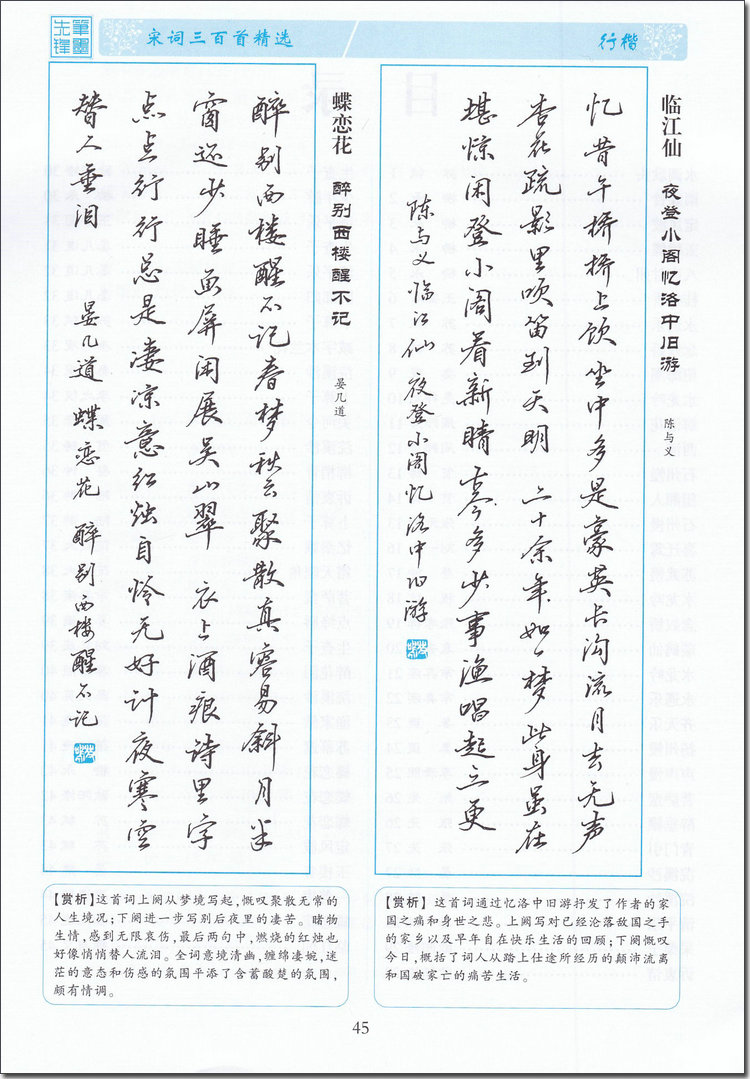 笔墨先锋
宋词三百首精选
行楷
临江仙 夜登小阁忆洛中旧游
陈与义
忆昔午桥桥上饮坐中多是豪英长沟流月去无声
杏花疏影里吹笛到天明 二十余年如一梦此身虽在
堪惊闲登小阁看新晴古今多少事渔唱起三更
陈与义临江仙夜登小阁忆洛中旧游
蝶恋花 醉别西楼醒不记
晏几道
醉别西楼醒不记春梦秋云聚散真容易斜月半
窗还少睡画屏闲展吴山翠 衣上酒痕诗里字
点点行行总是凄凉意红烛自怜无好计夜寒空
替人垂泪 晏几道蝶恋花 醉别西楼醒不记
【赏析】这首词上阕从梦境写起,慨叹聚散无常的
人生境况;下阕进一步写别后夜里的凄苦。睹物
生情,感到无限哀伤,最后两句中,燃烧的红烛也
好像悄悄替人流泪。全词意境清幽,缠绵凄婉,迷
茫的意态和伤感的氛围平添了含蓄酸楚的氛围,
颇有情调。
【赏析】这首词通过忆洛中旧游抒发了作者的家
国之痛和身世之悲。上阕写对已经沦落敌国之手
的家乡以及早年自在快乐生活的回顾;下阕慨叹
今日,概括了词人从踏上仕途所经历的颠沛流离
和国破家亡的痛苦生活。
45